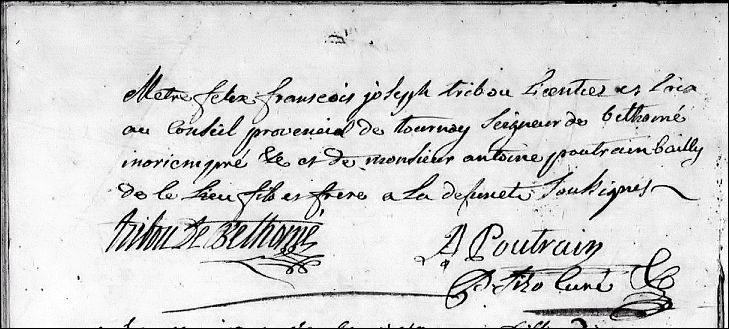 Metre felix franscois joseph tribou licenties es loix
au Conseil provencial de tournay Seigneur de bethomé
moriempré &c et de monsieur antoine poutrain bailly
de le fils et frere a La defunete Soussignes
tribou de Bethomé
A Poutrain
Curé